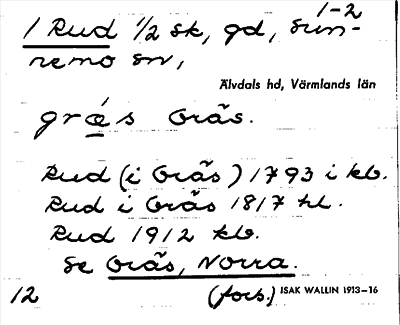 1-2
1 Rud 1/2 sk, gd, Sun-
nemo sn,
Älvdals hd, Värmlands län
grǻs Gräs.
Rud (i Gräs) 1793 i kb.
Rud i Gräs 1817 hl.
Rud 1912 kb.
Se Gräs, Norra.
12 (fors.) ISAK WALLIN 1913-16